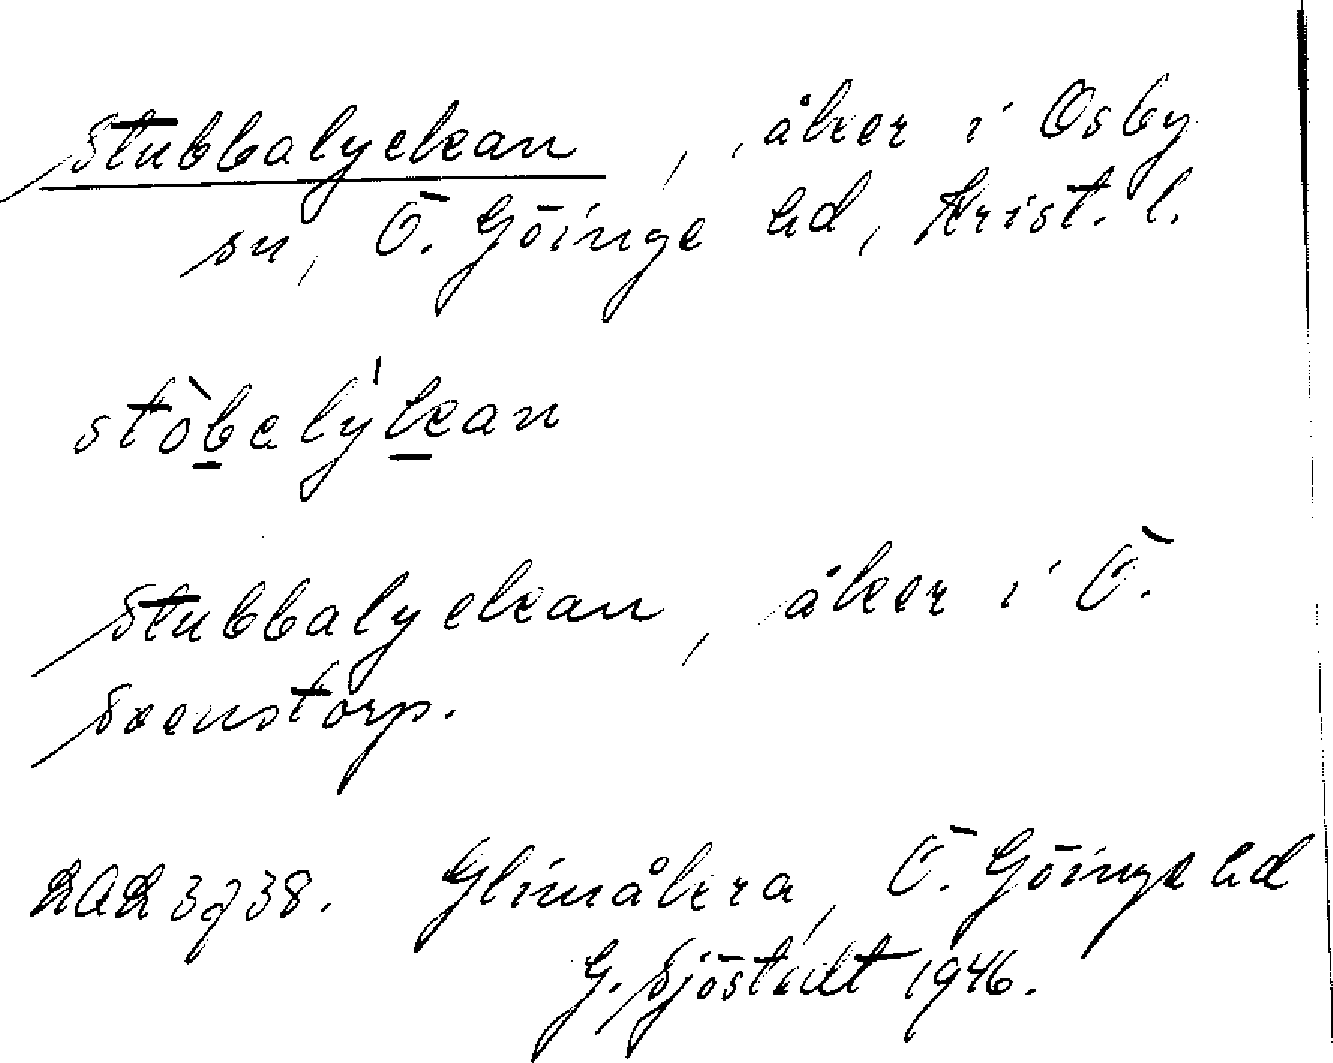 Stubbalyckan, åker i Osby
sn, Ö. Göinge hd, Krist. l.
stòbalýkan
Stubbalyckan, åker i Ö.
Svenstorp.
Glimåkra, Ö. Göinge hd
G. Sjöstedt 1946.